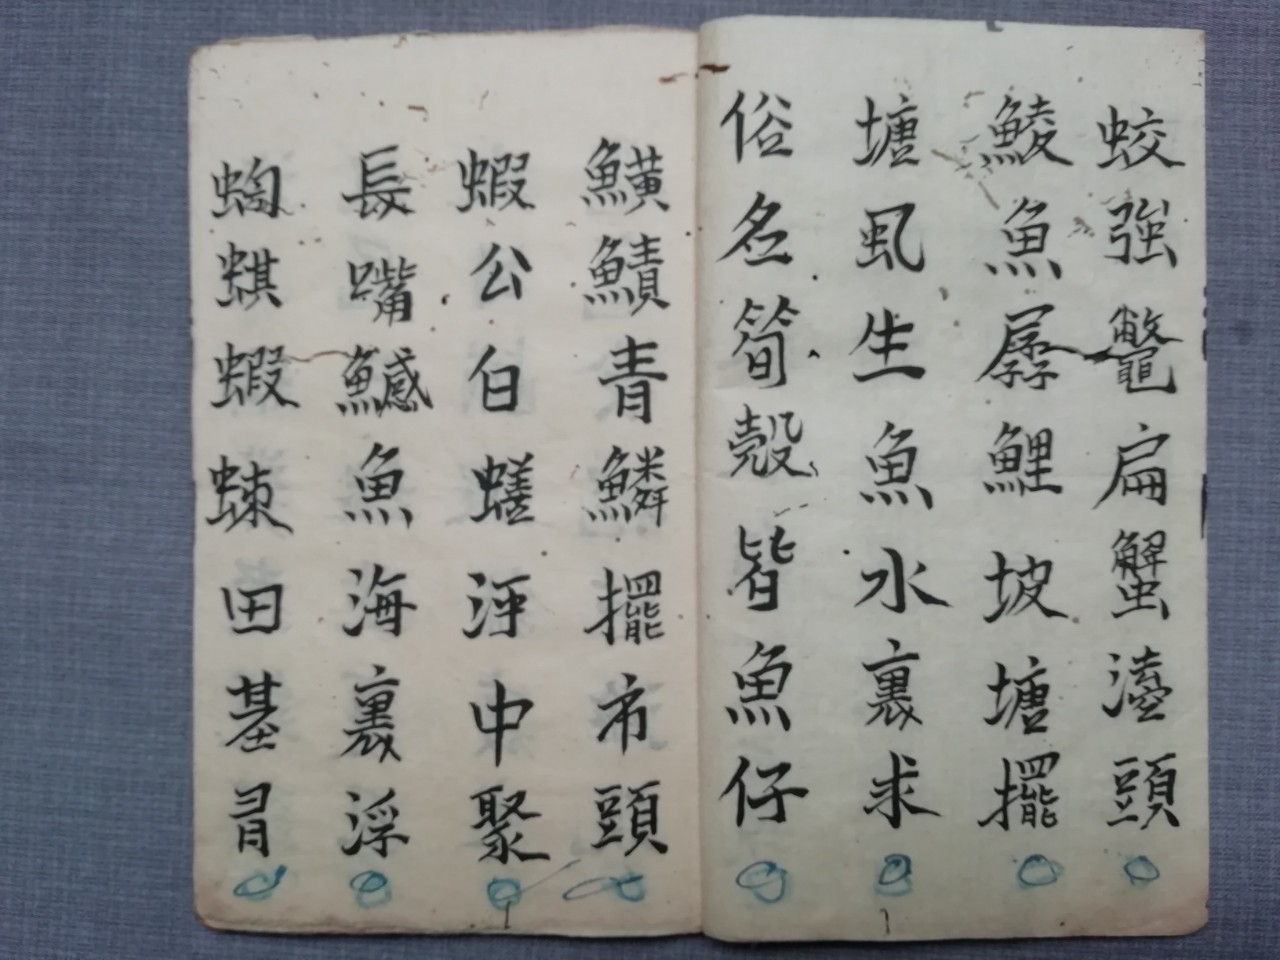 蛟強鼈扁蟹𬈧頭
鯪魚孱鯉坡塘擺
塘虱生魚水裏求
俗名筍殼皆魚仔
鱑鰿青鱗擺市頭
蝦公白蟮泙中聚
長嘴鱤魚海裏浮
蜪蜞蝦蛛田基冐